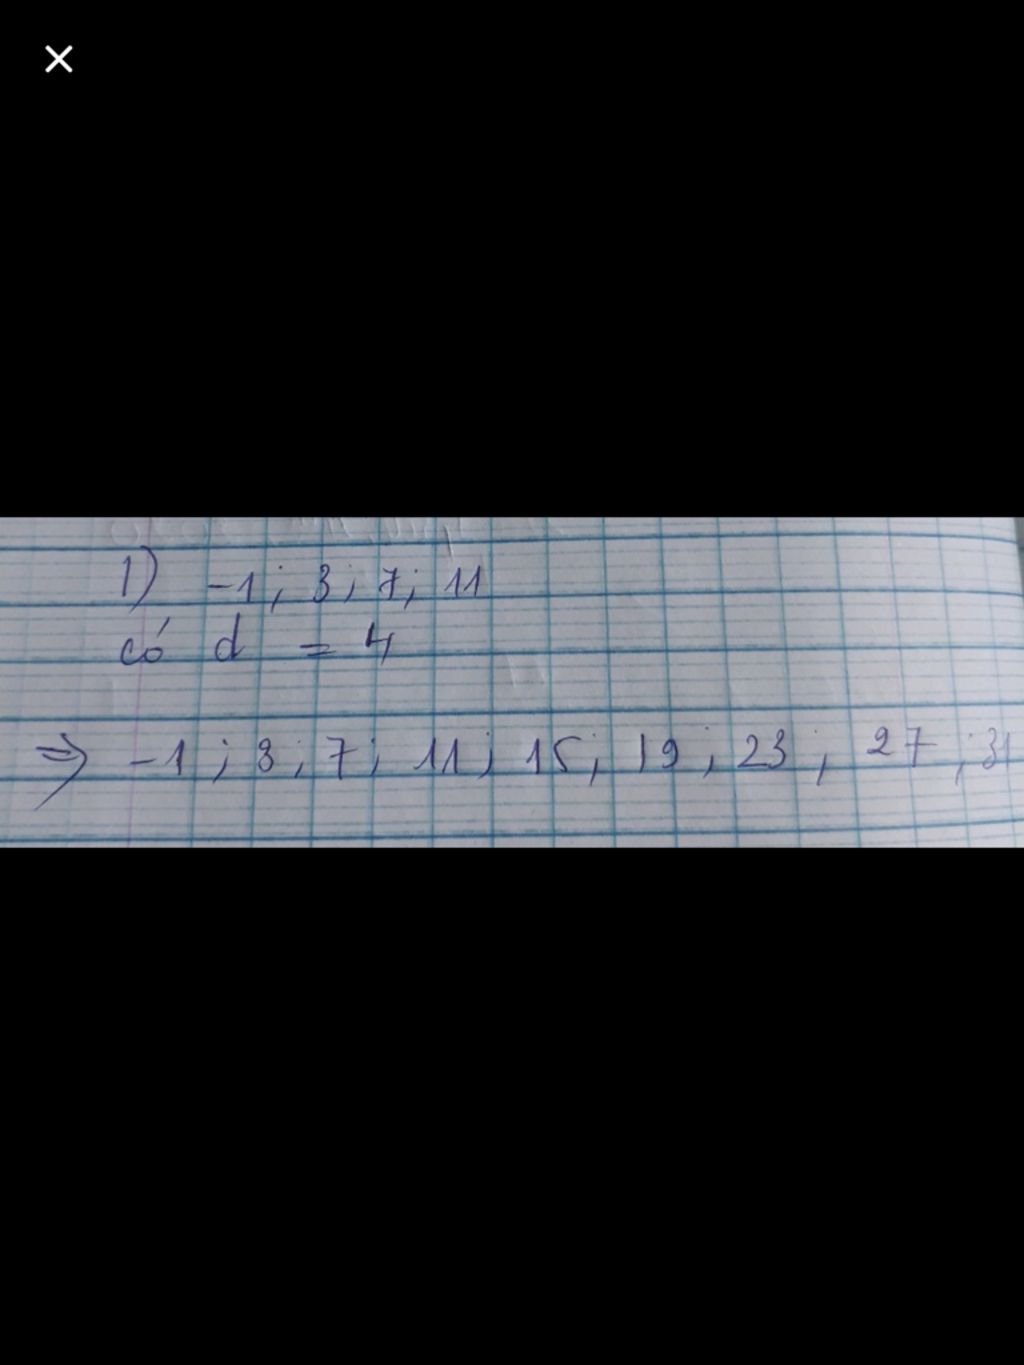 1) -1; 3; 7; 11
có d = 4
⇒ -1; 3; 7; 11; 15; 19; 23, 27; 31